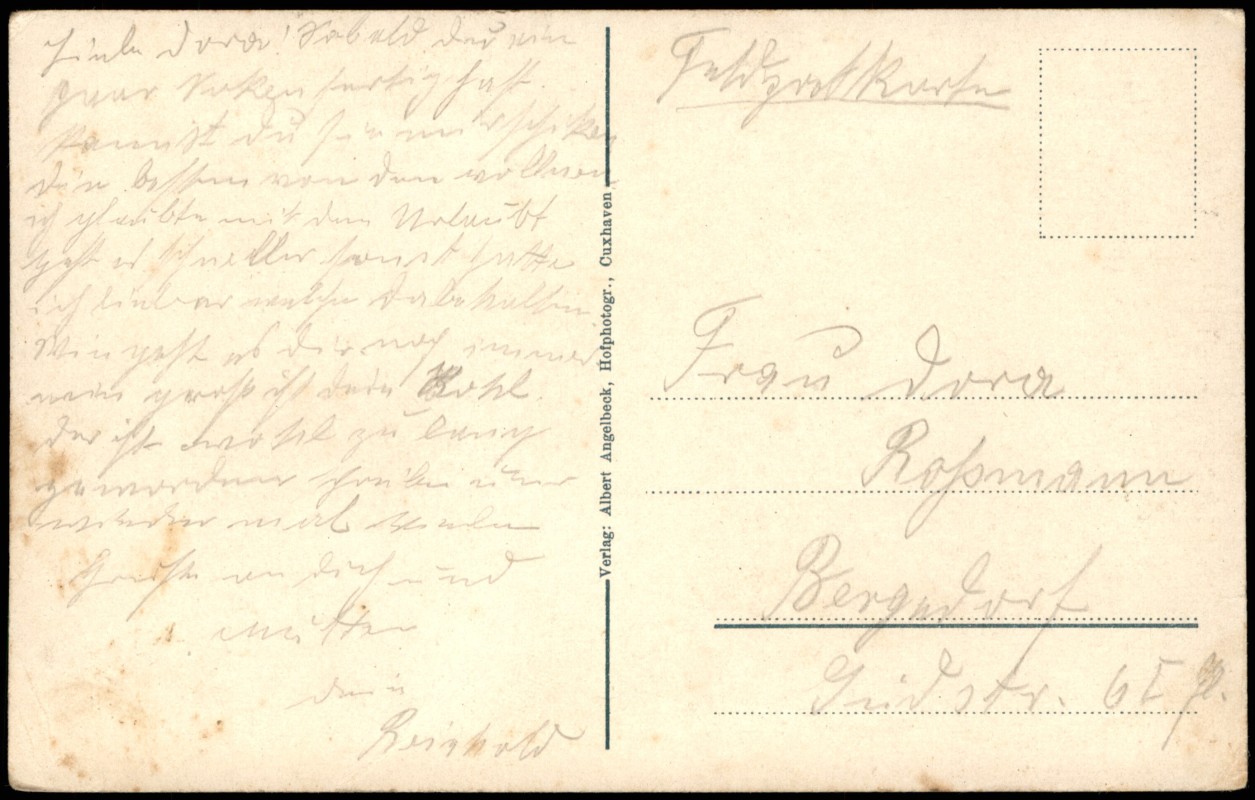 Liebe Dora! Sobald du ein
paar Soken fertig hast
kannst du sie mir schiken
die besten von den wollnen
ich glaubte mit den Urlaubt
geht es schneller sonst hatte
ich lieber welche dabehalten
Wie geht es dir noch immer
wie groß ist dein Kohl.
der ist wohl zu lang
geworden schreibe
wieder mal viele
Grüße an dich und
Mutter
dein
Reinhold
Verlag: Albert Angelbeck, Hofphotogr., Cuxhaven
Feldpostkarte
Frau Dora
Roßmann
Bergedorf
Südstr. 6 I